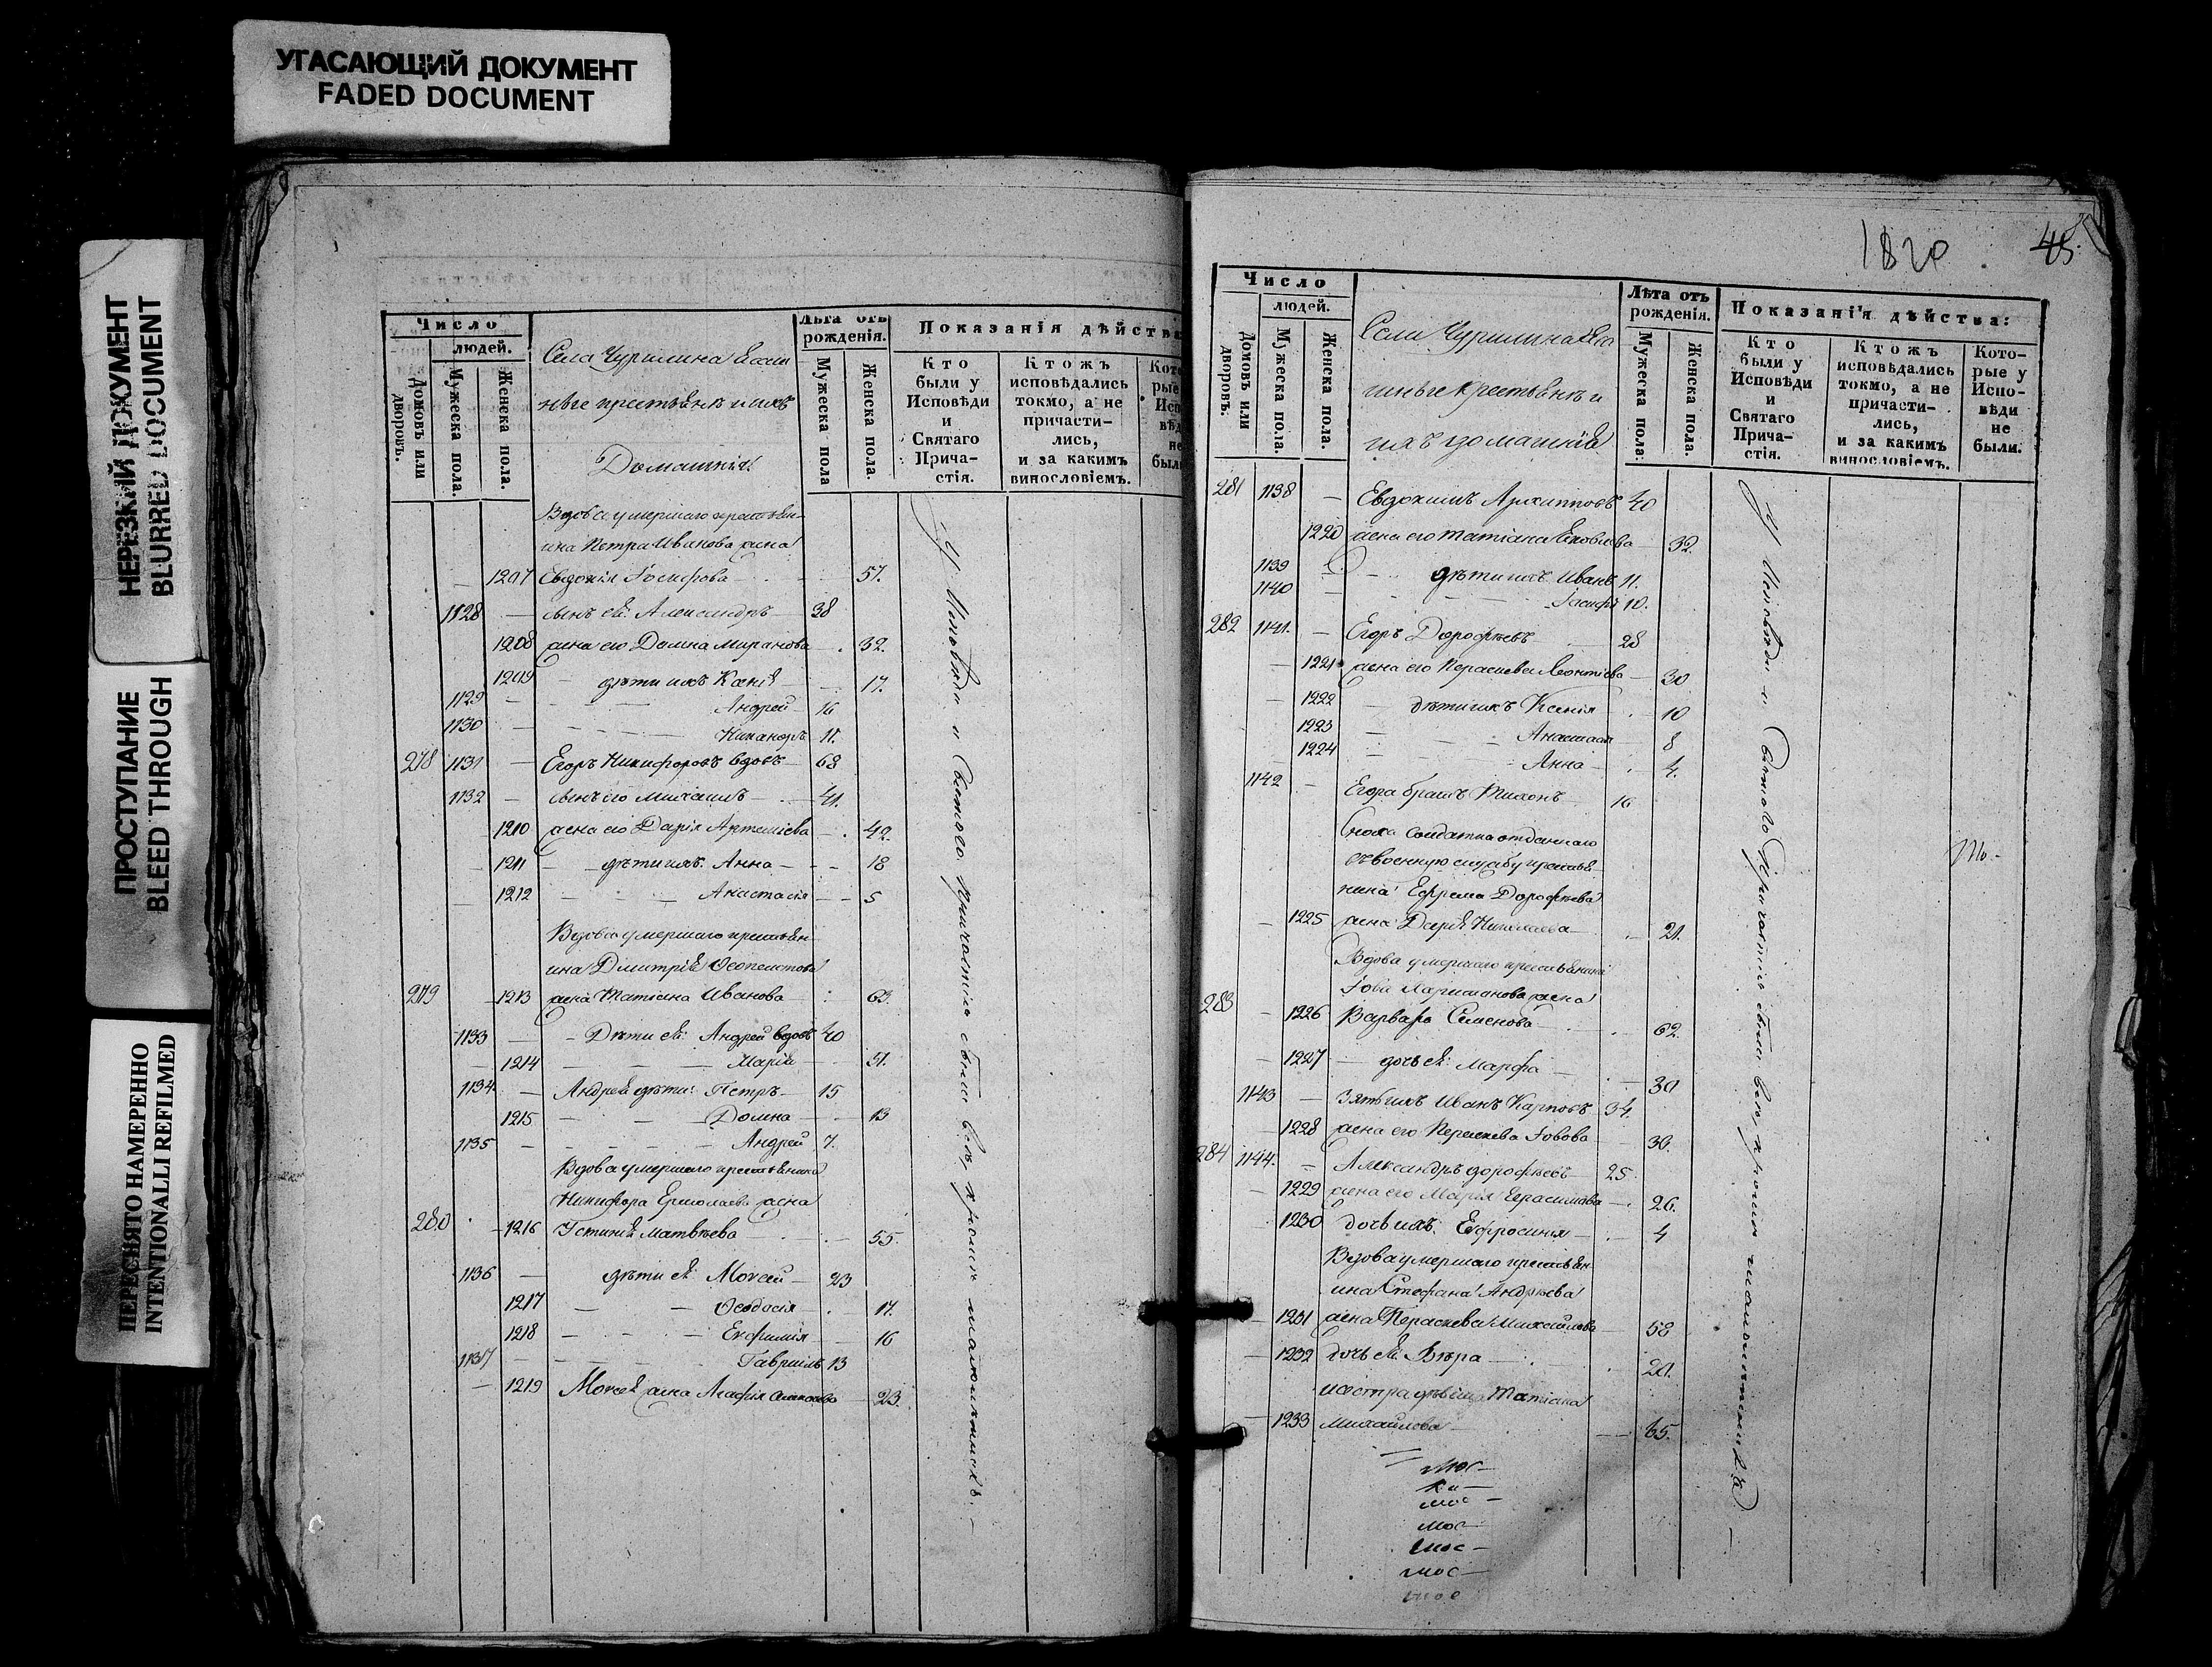 УГАСАЮЩИЙ ДОКУМЕНТ
FADED DOCUMENT
НЕРЕЗКИЙ ДОКУМЕНТ
BLURRED DOCUMENT
ПРОСТУПАНИЕ
BLEED THROUGH
ПЕРЕСНЯТО НАМЕРЕННО
INTENTIONALLI REFILMED
Число
людей.
Домовъ или дворовъ.
Мужеска пола.
Женска пола.
Села Чурилина
крестьянъ и ихъ
Домашнія
Лѣта отъ рожденія.
Мужеска пола
Женска пола.
Показанія дѣйства
Кто были у Исповѣди и Святаго Прича-стія.
Ктожъ исповѣдались токмо, а не причасти-лись, и за какимъ винословіемъ.
Вдова умершаго крестьян-
ина Петра Иванова жена
1207 Евдокія Іосифова 57.
1128 сынъ ея Александръ 38
1208 жена его Домна Миранова 32.
1209 дѣти ихъ Ксенія 17.
1129 Андрей 16
1130 Никаноръ 11.
278 1131 Егоръ Никифоровъ вдовъ 68
1132 сынъ его Михаилъ 41.
1210 жена его Дарія Артеміева 42.
1211 дѣти ихъ: Анна 18
1212 Анастасія 5
Вдова умершаго крестьян-
ина Димитрія
279 1213 жена Татіана Иванова 63.
1133 Дѣти ея: Андрей вдовъ 40
1214 Марія 31.
1134 Андрея дѣти: Петръ 15
1215 Домна 13
1135 Андрей 7.
Вдова умершаго крестьянина
Никифора Ермолаева жена
280 1216 Устинія Матвѣева 55.
1136 дѣти ея Моисей 23
1217 Ѳеодосія 17.
1218 Евфимія 16
1137 Гавріилъ 13
1219 Моисея жена Агафія 23.
У Исповѣди и Святаго Причастія были всѣ, кромѣ малолѣтныхъ.
1820
45
Число
людей.
Домовъ или дворовъ.
Мужеска пола.
Женска пола.
Села Чурилина
крестьянъ и
ихъ домашнія
Лѣта отъ рожденія.
Мужеска пола.
Женска пола.
Показанія дѣйства:
Кто были у Исповѣди и Святаго Прича-стія.
Ктожъ исповѣдались токмо, а не причасти-лись, и за какимъ винословіемъ.
Кото-рые у Испо-вѣди не были.
281 1138 Евдокимъ Архиповъ 40
1220 жена его Татіана Яковлева 32.
1139 дѣти ихъ Иванъ 11.
1140 Іосифъ 10.
282 1141. Егоръ Дорофѣевъ 28
1221 жена его Параскева Леонтіева 30
1222 дѣти ихъ Ксенія 10
1223 Анастасія 8
1224 Анна 4.
1142 Егора братъ Тихонъ 16
Сноха солдатка отданнаго
въ военную службу крестья-
нина Ефрема Дорофѣева
1225 жена Дарія Николаева 21.
Вдова умершаго крестьянина
Іова жена
283 1226 Варвара Семенова 62.
1227 дочь ея: Марфа 30
1143 зять ихъ Иванъ Карповъ 34.
1228 жена его Параскева Іовова 30.
284 1144. Александръ Дорофѣевъ 25
1229 жена его Марія Герасимова 26.
1230 дочь ихъ: Ефросинія 4
Вдова умершаго крестьян-
ина Стефана Андрѣева
1231 жена Параскева Михайлова 58
1232 дочь ея Вѣра 20.
и сестра дѣвица Татіана
1233 Михайлова 65.
У Исповѣди и Святаго Причастія были всѣ, кромѣ